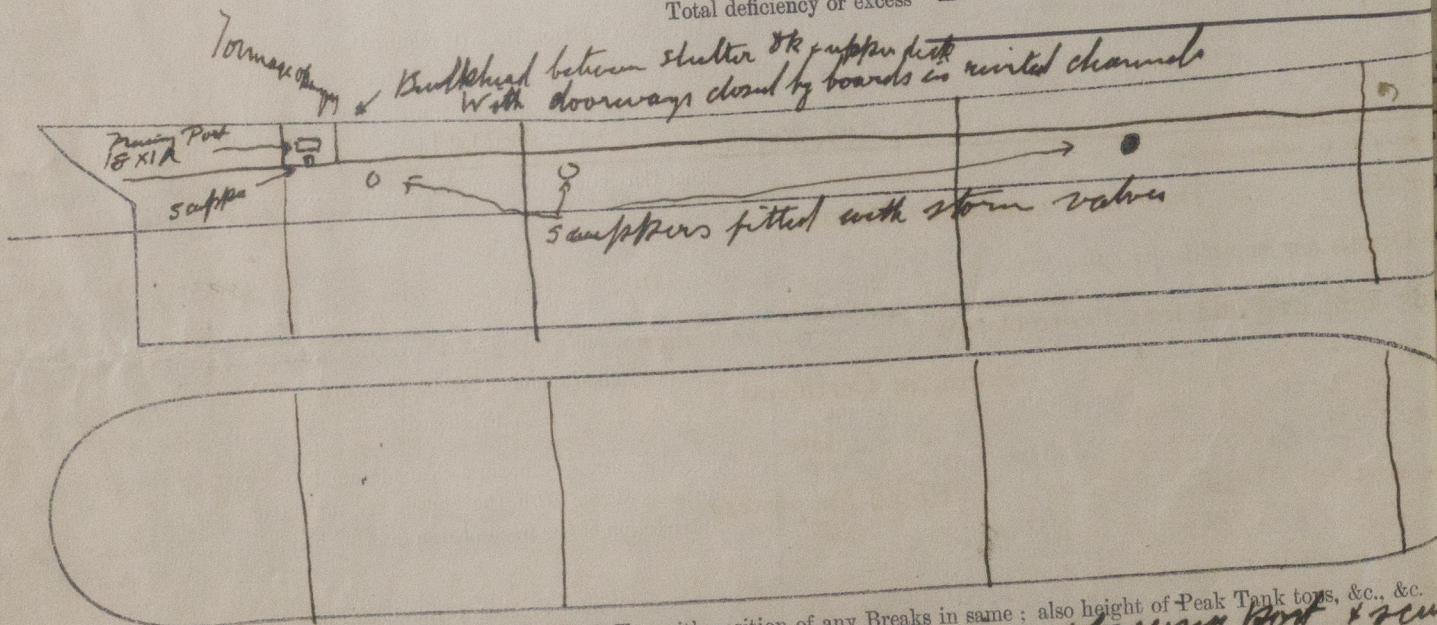 Total deficiency or excess
Tonnage opening
Bulkhead between shelter dk & upper deck
With doorways closed by boards in rivited channels
Freeing Port
scupper
scuppers fitted with storm valves
position of any Breaks in same ; also height of Peak Tank tops, &c., &c.